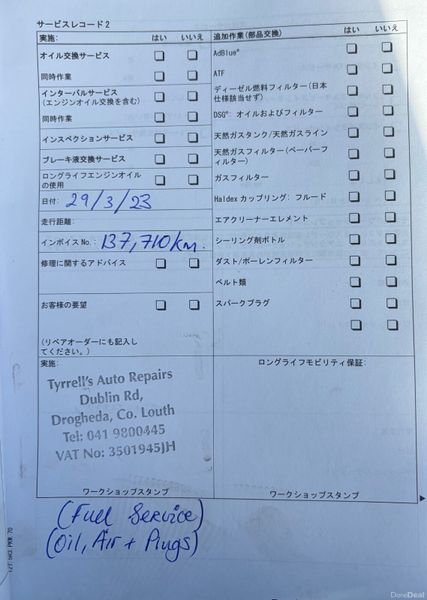 サービスレコード 2
実施: はい いいえ
オイル交換サービス
同時作業
インターバルサービス
(エンジンオイル交換を含む)
同時作業
インスペクションサービス
ブレーキ液交換サービス
ロングライフエンジンオイル
の使用
日付: 29/3/23
走行距離:
インボイス No.: 137,710km.
修理に関するアドバイス
お客様の要望
(リペアオーダーにも記入し
てください。)
追加作業(部品交換) はい いいえ
AdBlue®
ATF
ディーゼル燃料フィルター(日本
仕様該当せず)
DSG®: オイルおよびフィルター
天然ガスタンク/天然ガスライン
天然ガスフィルター(ペーパーフ
ィルター)
ガスフィルター
Haldex カップリング: フルード
エアクリーナーエレメント
シーリング剤ボトル
ダスト/ポーレンフィルター
ベルト類
スパークプラグ
実施:
Tyrrell's Auto Repairs
Dublin Rd,
Drogheda, Co. Louth
Tel: 041 9800445
VAT No: 3501945JH
ワークショップスタンプ
ロングライフモビリティ保証:
ワークショップスタンプ
(Full Service)
(Oil, Air + Plugs)
DoneDeal